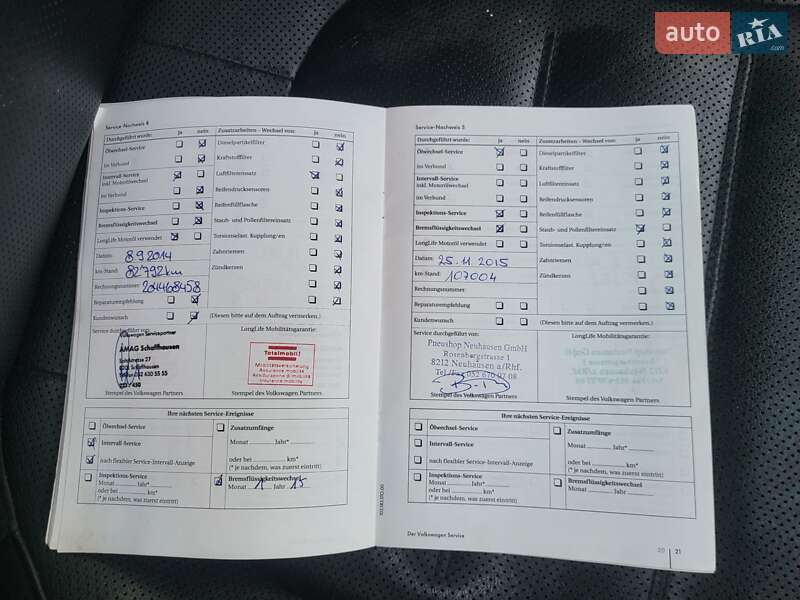 auto RIA .com
Service-Nachweis 4
Durchgeführt wurde: Ja nein Zusatzarbeiten – Wechsel von: Ja nein
Ölwechsel-Service Dieselpartikelfilter
im Verbund Kraftstofffilter
Intervall-Service Luftfiltereinsatz
inkl. Motorölwechsel
im Verbund Reifendrucksensoren
Inspektions-Service Reifenfüllflasche
Bremsflüssigkeitswechsel Staub- und Pollenfiltereinsatz
LongLife Motoröl verwendet Torsionselast. Kupplung/en
Datum: 8.9.2014 Zahnriemen
km-Stand: 82'792km Zündkerzen
Rechnungsnummer: 204468458
Reparaturempfehlung
Kundenwunsch (Diesen bitte auf dem Auftrag vermerken.)
Service durchgeführt von: LongLife Mobilitätsgarantie:
Volkswagen Servicepartner
AMAG Schaffhausen
8201 Schaffhausen
Totalmobil!
Mobilitätsversicherung
Assurance mobilité
Assicurazione di mobilità
Insurance mobility
Stempel des Volkswagen Partners Stempel des Volkswagen Partners
Ihre nächsten Service-Ereignisse
Ölwechsel-Service Zusatzumfänge
Intervall-Service Monat Jahr*
nach flexibler Service-Intervall-Anzeige oder bei km*
(* je nachdem, was zuerst eintritt)
Inspektions-Service Bremsflüssigkeitswechsel
Monat Jahr* Monat Jahr 15
oder bei km*
(* je nachdem, was zuerst eintritt)
Service-Nachweis 5
Durchgeführt wurde: Ja nein Zusatzarbeiten – Wechsel von: Ja nein
Ölwechsel-Service Dieselpartikelfilter
im Verbund Kraftstofffilter
Intervall-Service Luftfiltereinsatz
inkl. Motorölwechsel
im Verbund Reifendrucksensoren
Inspektions-Service Reifenfüllflasche
Bremsflüssigkeitswechsel Staub- und Pollenfiltereinsatz
LongLife Motoröl verwendet Torsionselast. Kupplung/en
Datum: 25.11.2015 Zahnriemen
km-Stand: 107004 Zündkerzen
Rechnungsnummer:
Reparaturempfehlung
Kundenwunsch (Diesen bitte auf dem Auftrag vermerken.)
Service durchgeführt von: LongLife Mobilitätsgarantie:
Pneushop Neuhausen GmbH
Rosenbergstrasse 1
8212 Neuhausen a/Rhf.
Tel. 052 670 07 08
Stempel des Volkswagen Partners Stempel des Volkswagen Partners
Ihre nächsten Service-Ereignisse
Ölwechsel-Service Zusatzumfänge
Intervall-Service Monat Jahr*
nach flexibler Service-Intervall-Anzeige oder bei km*
(* je nachdem, was zuerst eintritt)
Inspektions-Service Bremsflüssigkeitswechsel
Monat Jahr* Monat Jahr
oder bei km*
(* je nachdem, was zuerst eintritt)
Der Volkswagen Service
20 21